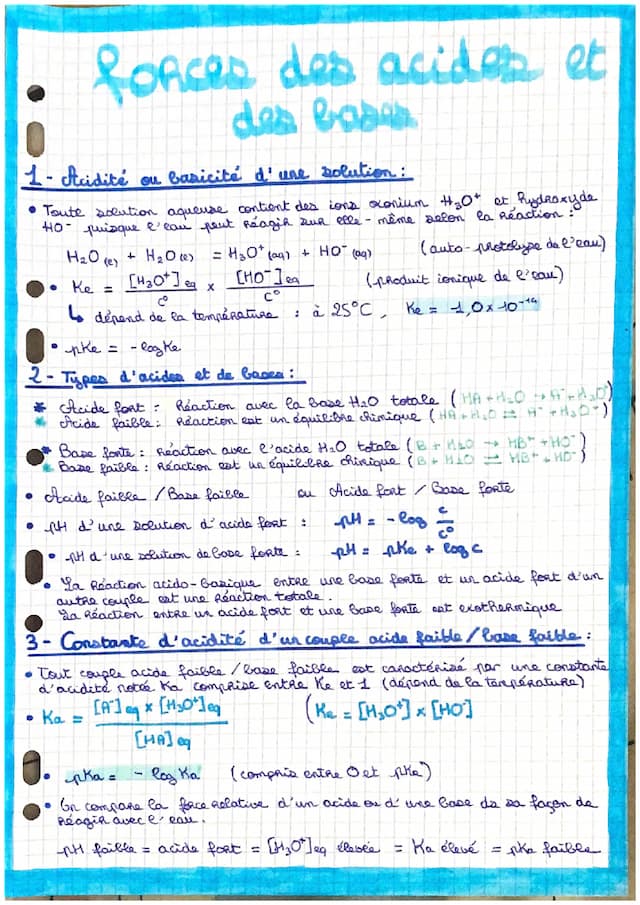 forces des acides et
des bases
1 - Acidité ou basicité d'une solution :
• Toute solution aqueuse contient des ions oxonium H₃O⁺ et hydroxyde
HO⁻ puisque l'eau peut réagir sur elle-même selon la réaction :
H₂O (l) + H₂O (l) = H₃O⁺ (aq) + HO⁻ (aq) (auto-protolyse de l'eau)
• Ke = [H₃O⁺]eq / C° × [HO⁻]eq / C° (produit ionique de l'eau)
↳ dépend de la température : à 25°C, Ke = 1,0 × 10⁻¹⁴
• pKe = - log Ke
2 - Types d'acides et de bases :
* Acide fort : Réaction avec la base H₂O totale (HA + H₂O → A⁻ + H₃O⁺)
* Acide faible : Réaction est un équilibre chimique (HA + H₂O ⇌ A⁻ + H₃O⁺)
* Base forte : Réaction avec l'acide H₂O totale (B + H₂O → HB⁺ + HO⁻)
* Base faible : Réaction est un équilibre chimique (B + H₂O ⇌ HB⁺ + HO⁻)
• Acide faible / Base faible ou Acide fort / Base forte
• pH d'une solution d'acide fort : pH = - log c / c°
• pH d'une solution de base forte : pH = pKe + log c
• La Réaction acido-basique entre une base forte et un acide fort d'un
autre couple est une Réaction totale.
La Réaction entre un acide fort et une base forte est exothermique
3 - Constante d'acidité d'un couple acide faible / base faible :
• Tout couple acide faible / base faible est caractérisé par une constante
d'acidité notée Ka comprise entre Ke et 1 (dépend de la température)
• Ka = [A⁻]eq × [H₃O⁺]eq / [HA]eq (Ke = [H₃O⁺] × [HO⁻]
• pKa = - log Ka (compris entre 0 et pKe)
• On compare la force relative d'un acide ou d'une base de sa façon de
réagir avec l'eau.
pH faible = acide fort = [H₃O⁺]eq élevée = Ka élevé = pKa faible